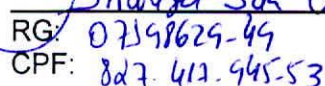 RG: 07598629-49
CPF: 827.417.945-53